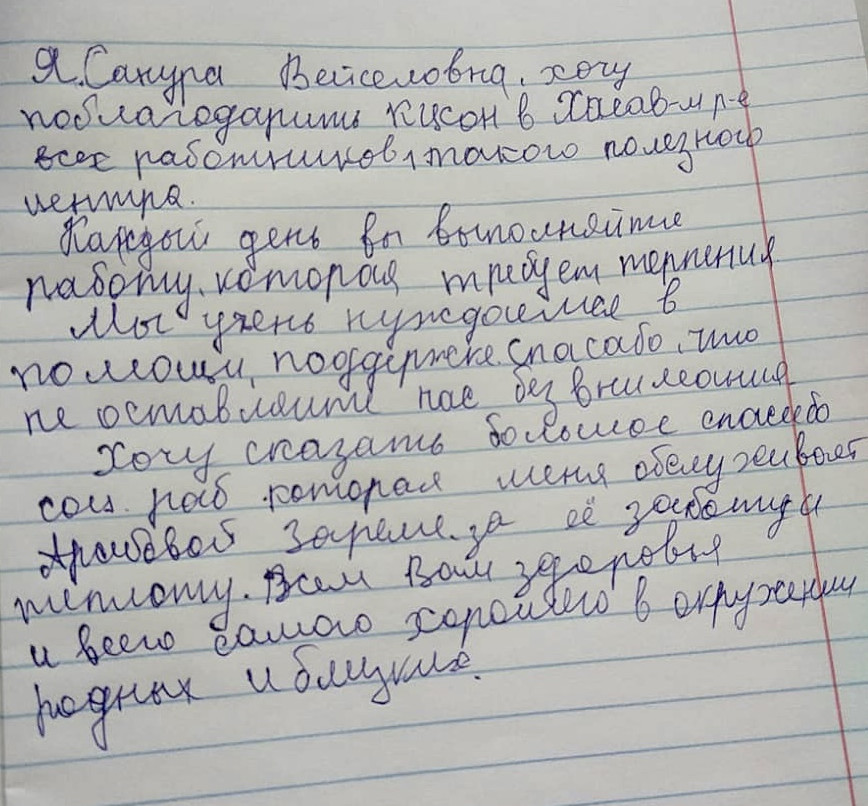 Я. Санура Вейселовна, хочу
поблагодарить КЦСОН в Хасав-м р-е
всех работников, такого полезного
центра.
Каждый день вы выполняйте
работу, которая требует терпения
Мы учень нуждаемся в
помощи, поддержке. спасабо, что
не оставляити нас без внимания
Хочу сказать большое спасибо
соц. раб которая меня обслуживает
Зареме. за её заботу и
теплоту. Всем Вам здоровья
и всего самого хорошего в окружении
родных и блицких.